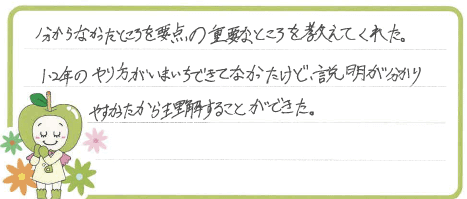 分からなかったところを要点の重要なところを教えてくれた。
1・2年のやり方がいまいちできてなかたけど、説明が分かり
やすかたから理解することができた。